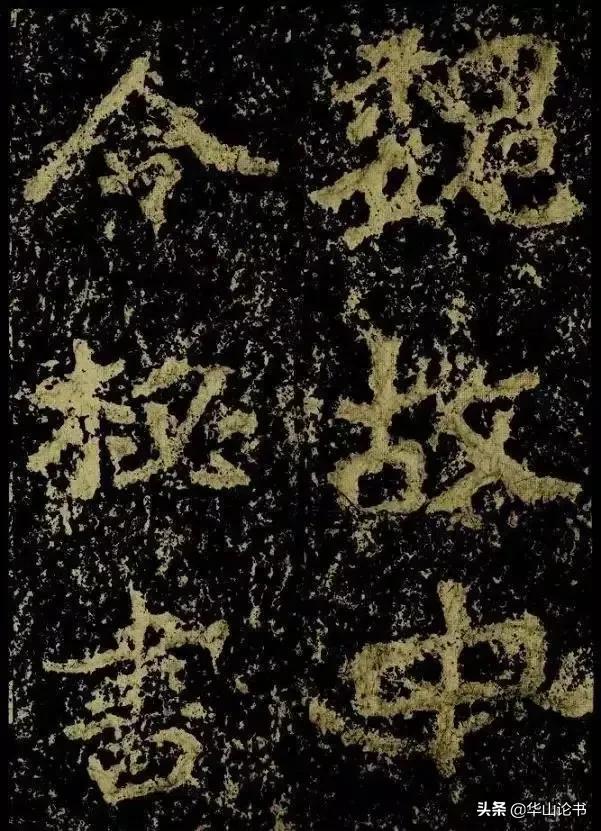 魏故中
令秘書
头条 @华山论书